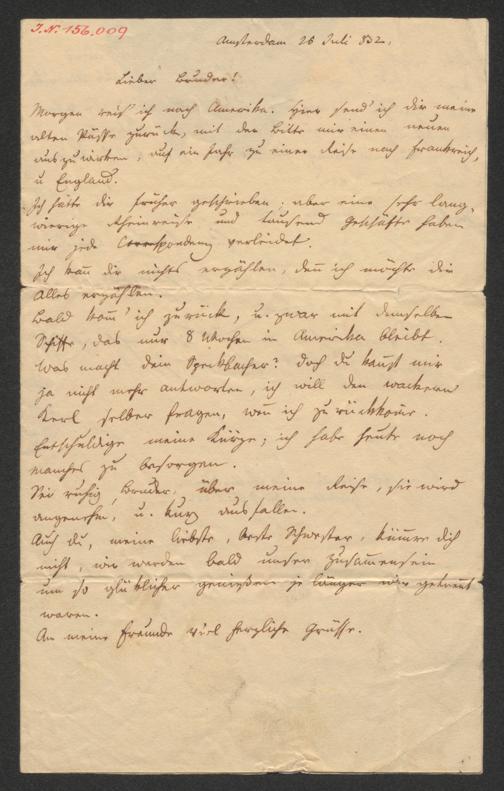 J.N. 156.009
Amsterdam 26 Juli 832.
Lieber Bruder!
Morgen reis' ich nach Amerika. Hier send' ich dir meine
alten Pässe zurück, mit der Bitte mir einen neuen
auszuwirken, auf ein Jahr zu einer Reise nach Frankreich,
u England.
Ich hätte dir früher geschrieben; aber eine sehr lang-
wierige Rheinreise und tausend Geschäfte haben
mir jede Correspondenz verleidet.
Ich kann dir nichts erzählen, denn ich möchte dir
Alles erzählen.
Bald kom' ich zurück, u. zwar mit demselben
Schiffe, das nur 8 Wochen in Amerika bleibt.
Was macht dein Speckbacher? doch du kannst mir
ja nicht mehr antworten, ich will den wackern
Kerl selber fragen, wenn ich zurückkome.
Entschuldige meine Kürze; ich habe heute noch
manches zu besorgen.
Sei ruhig, Bruder, über meine Reise, sie wird
angenehm, u. kurz ausfallen.
Auch du, meine liebste, beste Schwester, kümre dich
nicht, wir werden bald unser Zusamensein
um so glüklicher genießen je länger wir getrennt
waren.
An meine Freunde viel herzliche Grüsse.